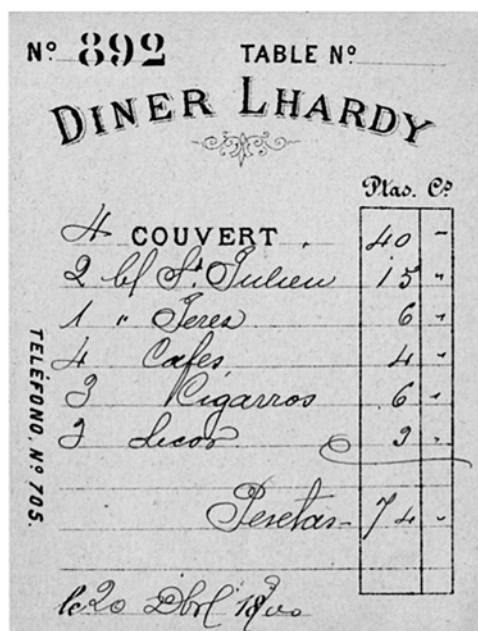 Nº 892 TABLE Nº
DINER LHARDY
Ptas. Cs
4 COUVERT 40 "
2 bl St. Julien 15 "
1 " Jeres 6 "
4 Cafes 4 "
3 Cigarros 6 "
3 Licor 3 "
Pesetas 74 "
le 20 Dbre
TELÉFONO, Nº 705.